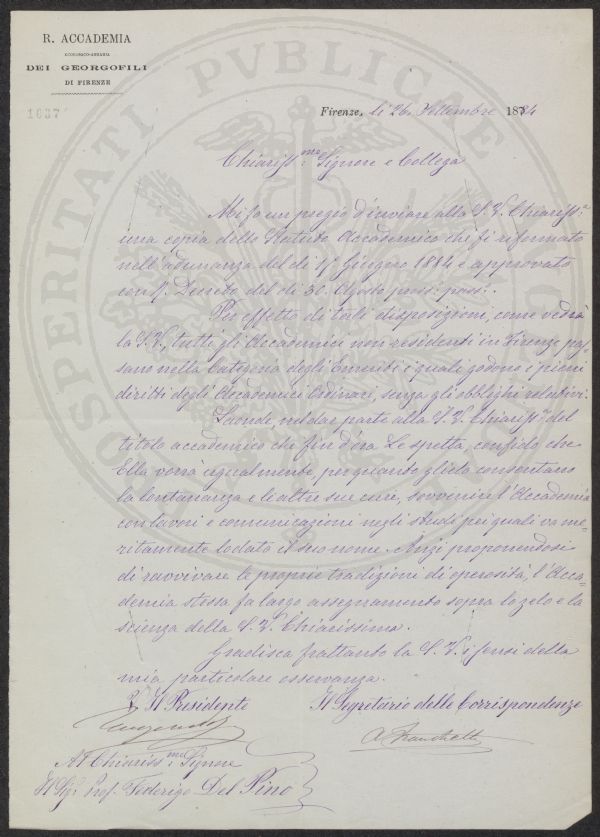 R. ACCADEMIA
ECONOMICO-AGRARIA
DEI GEORGOFILI
DI FIRENZE
1637
Firenze, li 26 Settembre 1884
Chiariss.mo Signore e Collega
Mi fo un pregio d'inviare alla S. V. Chiariss.
una copia dello Statuto Accademico che fu riformato
nell'adunanza del dì 1° Giugno 1884 e approvato
con R. Decreto del dì 30. Agosto pross. pass.
Per effetto di tali disposizioni, come vedrà
la S. V., tutti gli Accademici non residenti in Firenze pas-
sano nella Categoria degli Emeriti i quali godono i pieni
diritti degli Accademici Ordinari, senza gli obblighi relativi.
Laonde, nel dar parte alla S. V. Chiariss. del
titolo accademico che fin d'ora Le spetta, confido che
Ella vorrà ugualmente per quanto glielo consentano
la lontananza e le altre sue cure, sovvenire l'Accademia
con lavori e comunicazioni negli studi pei quali va me-
ritamente lodato il suo nome. Anzi proponendosi
di ravvivare le proprie tradizioni di operosità, l'Acca-
demia stessa fa largo assegnamento sopra lo zelo e la
scienza della S. V. Chiarissima.
Gradisca frattanto la S. V. i sensi della
mia particolare osservanza.
Il Presidente
Il Segretario delle Corrispondenze
A. Franchetti
Al Chiariss.mo Signore
Il Sig. Prof. Federigo Del Pino
PROSPERITATI PUBLICAE